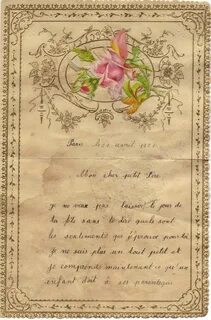 Paris avril
Mon cher petit Père
je ne veux pas laisser le jour de
ta fête sans te dire quels sont
les sentiments que j'éprouve pour toi
je ne suis plus un tout petit et
je comprends maintenant ce qu'un
enfant doit à ses